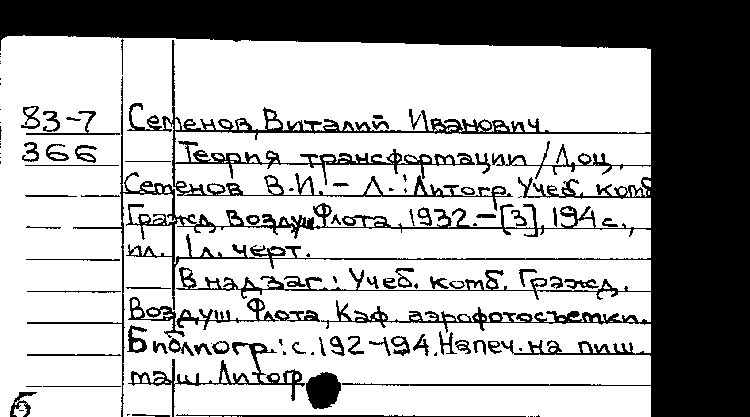 83-7 Семенов, Виталий Иванович.
366 Теория трансформации / Доц.
Семенов В.И. - Л.: Литогр. Учеб. комб
Гражд. Воздуш. Флота, 1932. - [3], 194 с.,
ил., 1 л. черт.
В надзаг.: Учеб. комб. Гражд.
Воздуш. Флота, Каф. аэрофотосъемки.
Библиогр.: с. 192-194. Напеч. на пиш.
маш. Литогр.
б